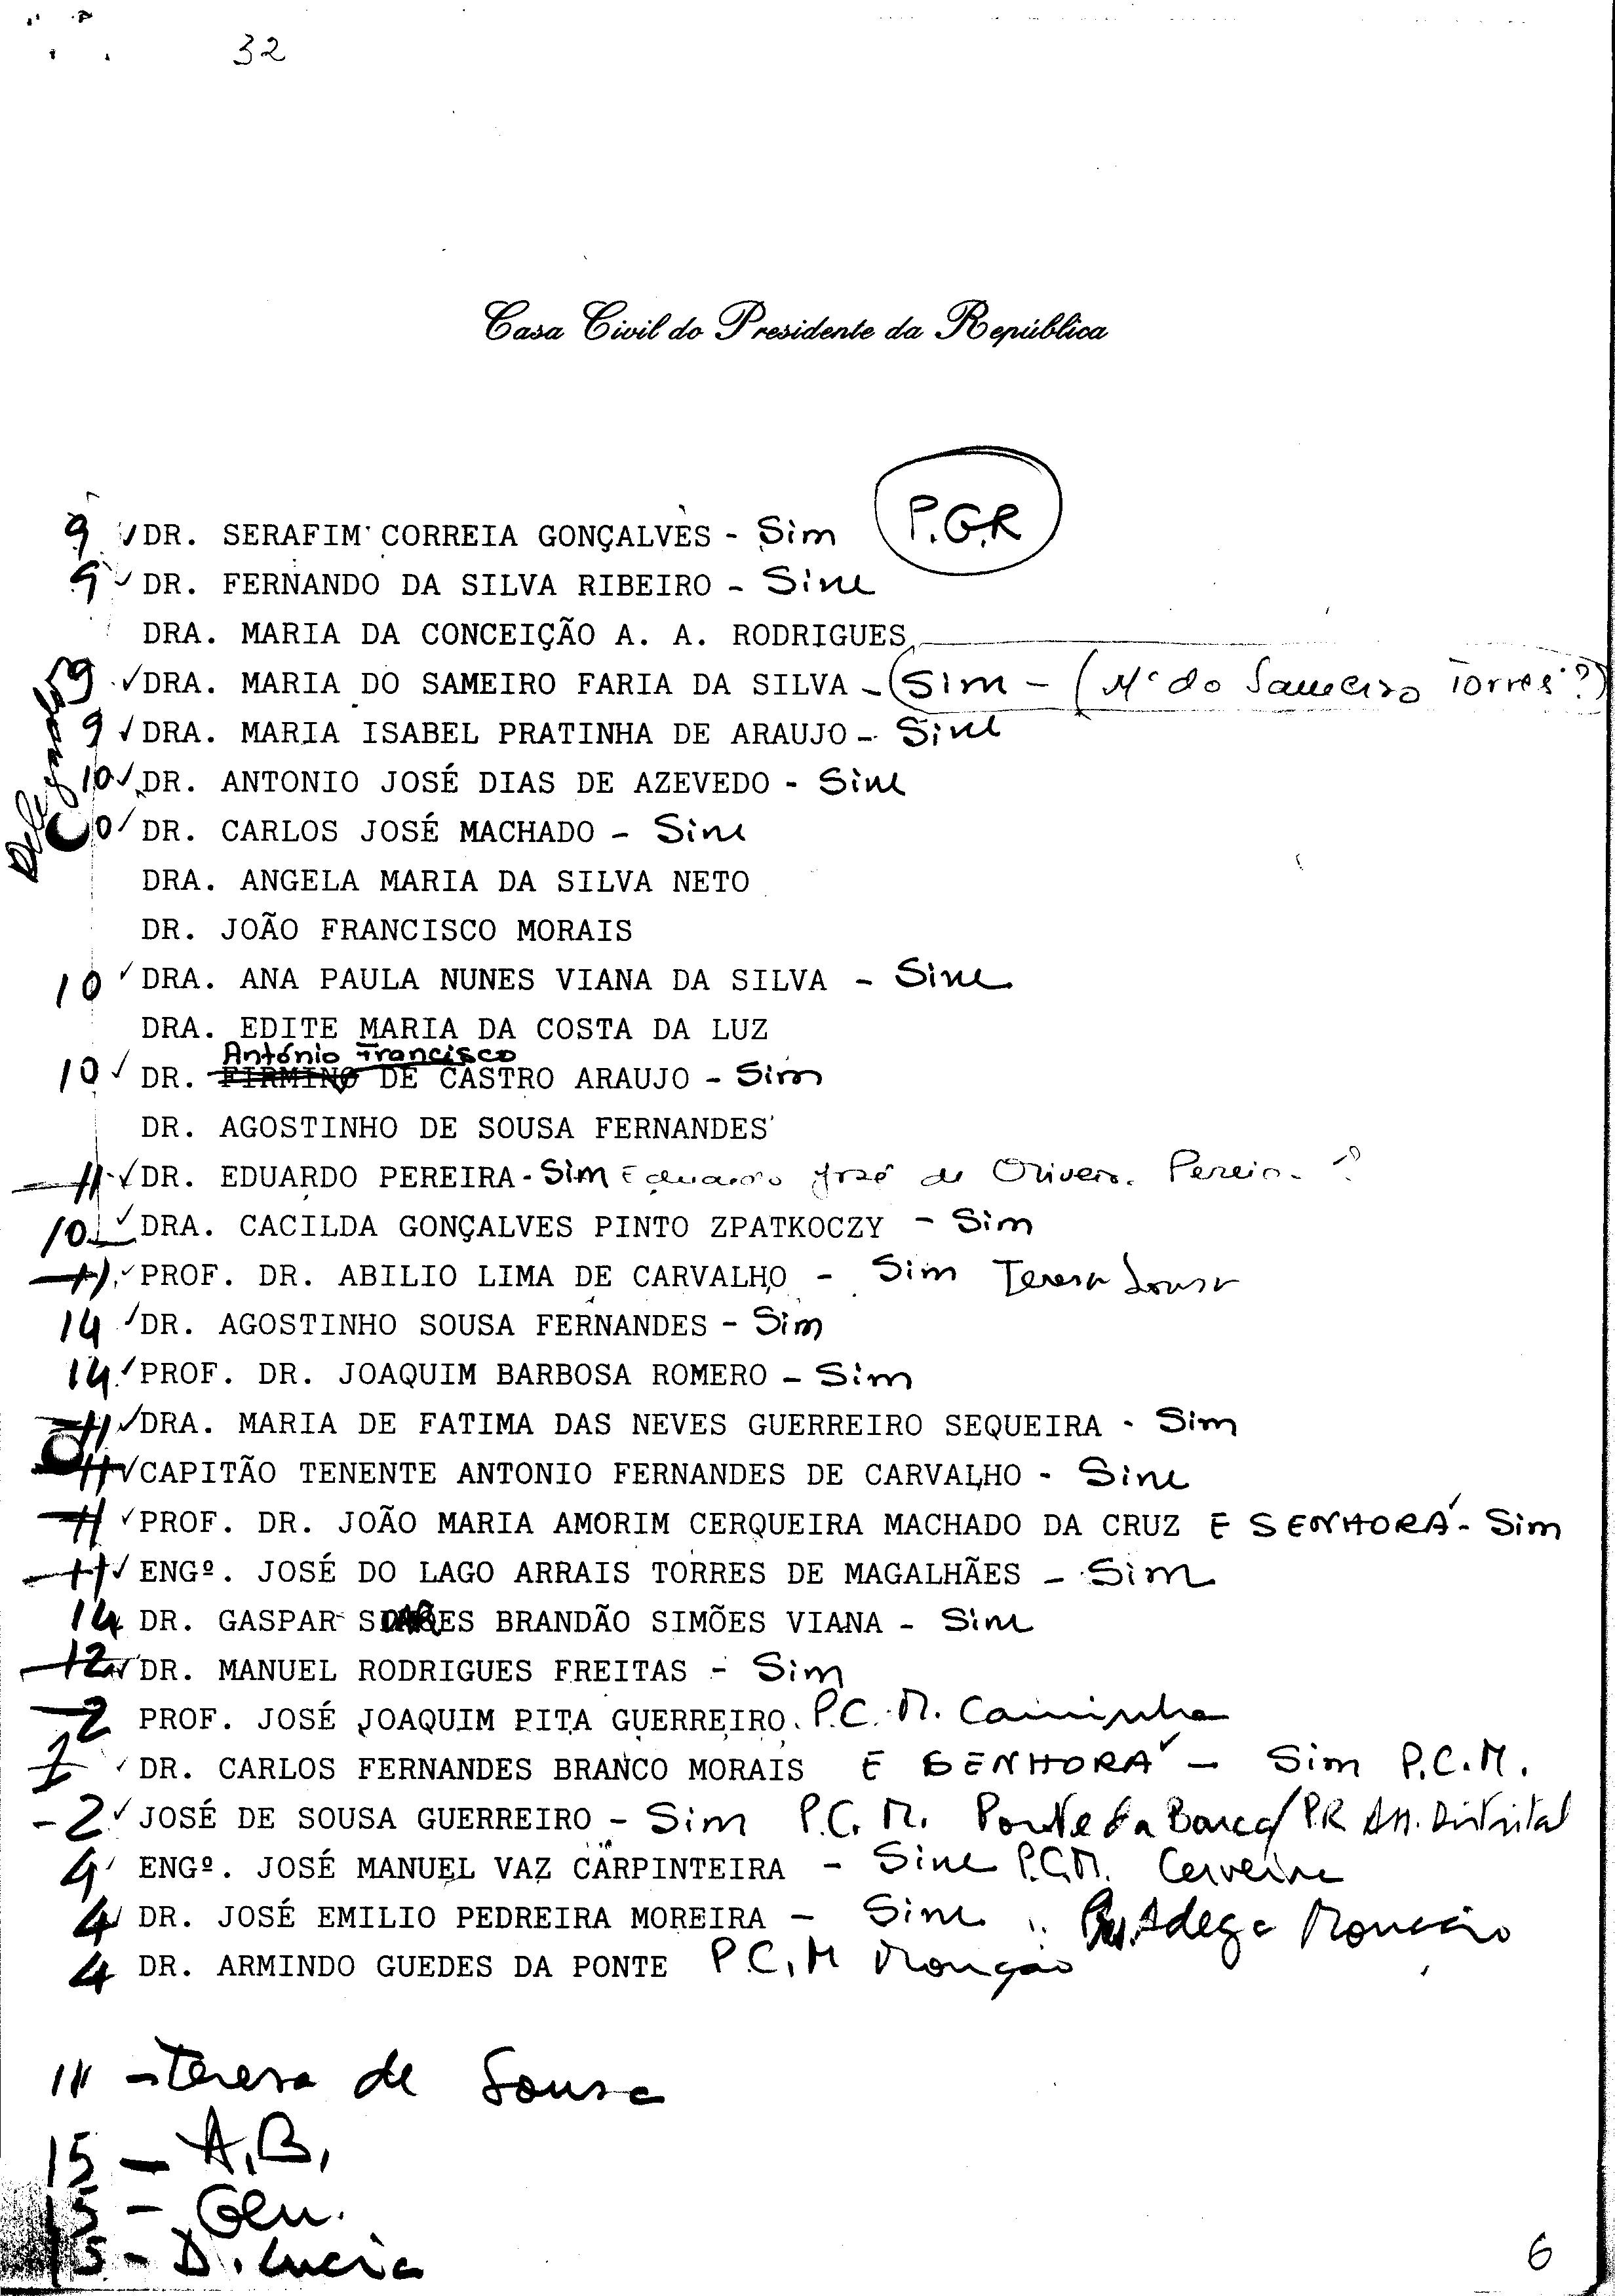 32
Casa Civil do Presidente da República
P.G.R
9 ✓ DR. SERAFIM CORREIA GONÇALVES - Sim
9 ✓ DR. FERNANDO DA SILVA RIBEIRO - Sim
DRA. MARIA DA CONCEIÇÃO A. A. RODRIGUES
9 ✓ DRA. MARIA DO SAMEIRO FARIA DA SILVA - Sim - (Mª do Sameiro Torres?)
9 ✓ DRA. MARIA ISABEL PRATINHA DE ARAUJO - Sim
10 ✓ DR. ANTONIO JOSÉ DIAS DE AZEVEDO - Sim
✓ DR. CARLOS JOSÉ MACHADO - Sim
DRA. ANGELA MARIA DA SILVA NETO
DR. JOÃO FRANCISCO MORAIS
10 ✓ DRA. ANA PAULA NUNES VIANA DA SILVA - Sim
DRA. EDITE MARIA DA COSTA DA LUZ
António Francisco
10 ✓ DR. FIRMINO DE CASTRO ARAUJO - Sim
DR. AGOSTINHO DE SOUSA FERNANDES
11 ✓ DR. EDUARDO PEREIRA - Sim Eduardo José de Oliveira Pereira - ?
10 ✓ DRA. CACILDA GONÇALVES PINTO ZPATKOCZY - Sim
11 ✓ PROF. DR. ABILIO LIMA DE CARVALHO - Sim Teresa Sousa
14 ✓ DR. AGOSTINHO SOUSA FERNANDES - Sim
14 ✓ PROF. DR. JOAQUIM BARBOSA ROMERO - Sim
11 ✓ DRA. MARIA DE FATIMA DAS NEVES GUERREIRO SEQUEIRA - Sim
11 ✓ CAPITÃO TENENTE ANTONIO FERNANDES DE CARVALHO - Sim
11 ✓ PROF. DR. JOÃO MARIA AMORIM CERQUEIRA MACHADO DA CRUZ E SENHORA ✓ - Sim
11 ✓ ENGº. JOSÉ DO LAGO ARRAIS TORRES DE MAGALHÃES - Sim
14 DR. GASPAR SOARES BRANDÃO SIMÕES VIANA - Sim
12 ✓ DR. MANUEL RODRIGUES FREITAS - Sim
2 PROF. JOSÉ JOAQUIM PITA GUERREIRO. P.C.M. Caminha
1 ✓ DR. CARLOS FERNANDES BRANCO MORAIS E SENHORA ✓ - Sim P.C.M.
2 ✓ JOSÉ DE SOUSA GUERREIRO - Sim P.C.M. Ponte da Barca/PR Distrital
4 ENGº. JOSÉ MANUEL VAZ CARPINTEIRA - Sim P.C.M. Cerveira
4 DR. JOSÉ EMILIO PEDREIRA MOREIRA - Sim Adega Monção
4 DR. ARMINDO GUEDES DA PONTE P.C.M Monção
11 - Teresa de Sousa
15 - A.B.
15 - Gen.
15 - D. Lucia
6